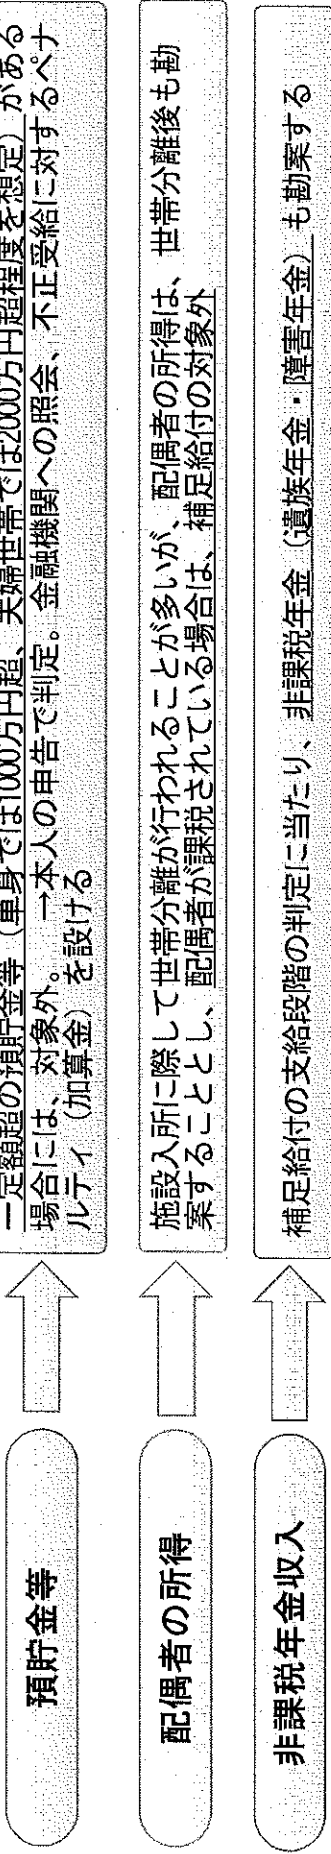 預貯金等
一定額超の預貯金等（単身では1000万円超、夫婦世帯では2000万円超程度を想定）がある
場合には、対象外。→本人の申告で判定。金融機関への照会、不正受給に対するペナ
ルティ（加算金）を設ける
配偶者の所得
施設入所に際して世帯分離が行われることが多いが、配偶者の所得は、世帯分離後も勘
案することとし、配偶者が課税されている場合は、補足給付の対象外
非課税年金収入
補足給付の支給段階の判定に当たり、非課税年金（遺族年金・障害年金）も勘案する